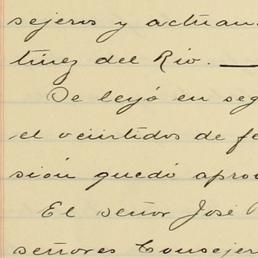 sejeros y actuan
tínez del Río.
Se leyó en seg
el veintidos de fe
sión quedó apro
El señor José
señores Conseje